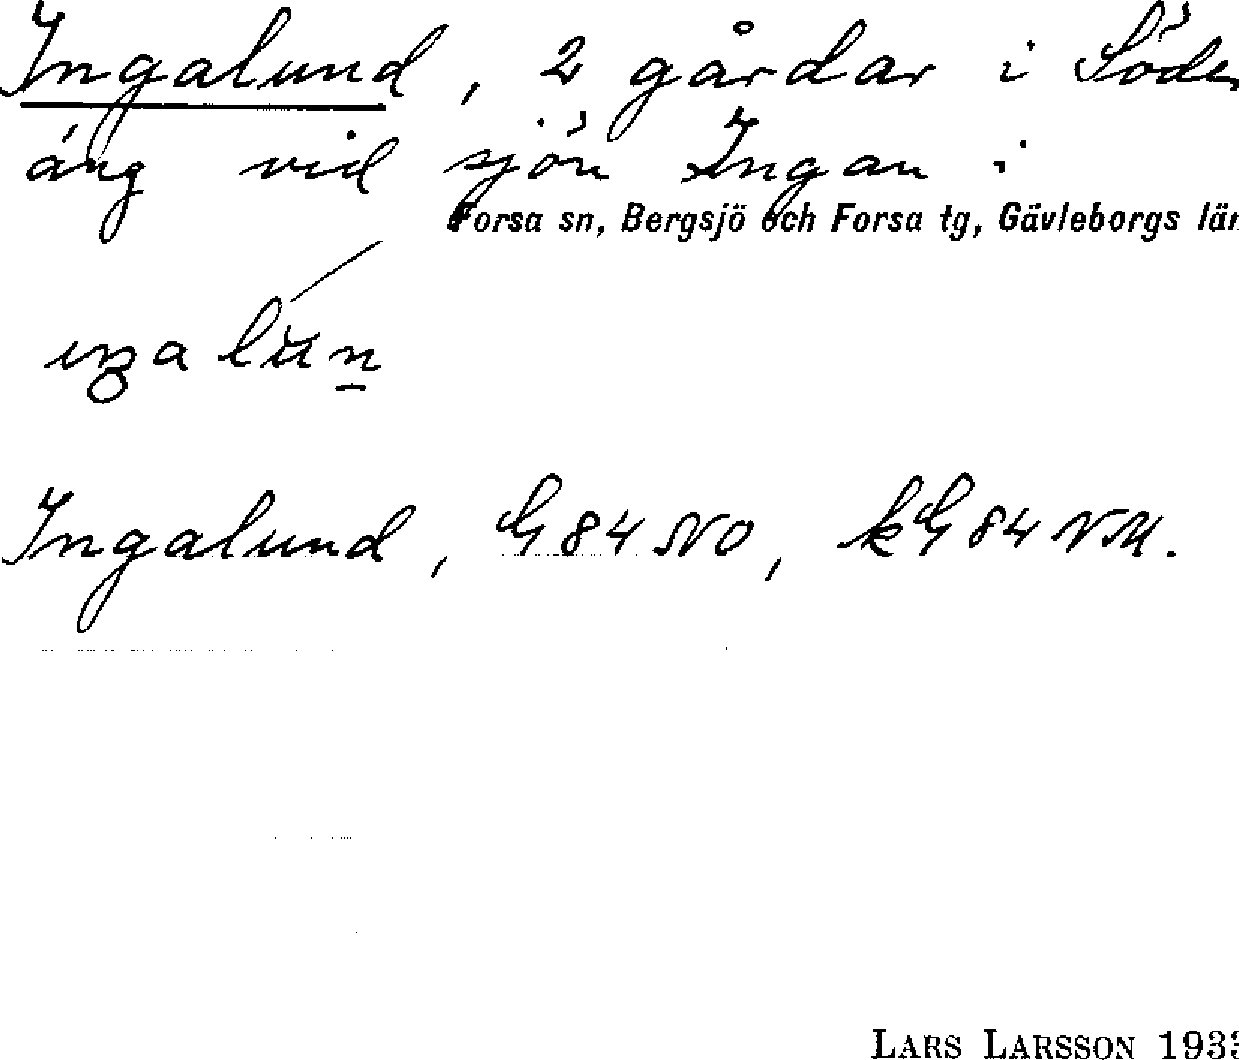 Ingalund, 2 gårdar i Söder
äng vid sjön Ingan i
Forsa sn, Bergsjö och Forsa tg, Gävleborgs län
Ingalund, G 84 NO, kG 84 NM.
LARS LARSSON 193